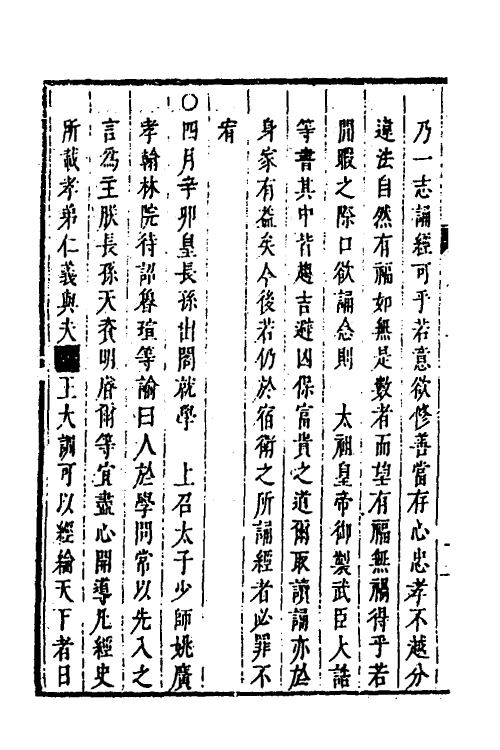 乃一志誦經可乎若意欲修善當存心忠孝不越分
違法自然有福如無是數者而望有福無禍得乎若
閒暇之際口欲誦念則　太祖皇帝御製武臣大誥
等書其中皆趨吉避凶保富貴之道爾取讀誦亦於
身家有益矣今後若仍於宿衛之所誦經者必罪不
宥
○四月辛卯皇長孫出閣就學　上召太子少師姚廣
孝翰林院待詔魯瑄等諭曰人於學問常以先入之
言爲主朕長孫天資明睿爾等宜盡心開導凡經史
所載孝弟仁義與夫　王大訓可以經綸天下者日